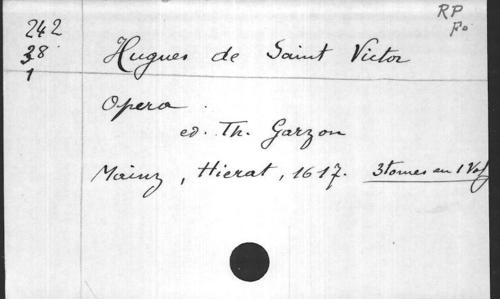 242
38
1
RP
Fo
Hugues de Saint Victor
Opera.
ed. Th. Garzon
Mainz, Hierat, 1617. 3 tomes en 1 Vol